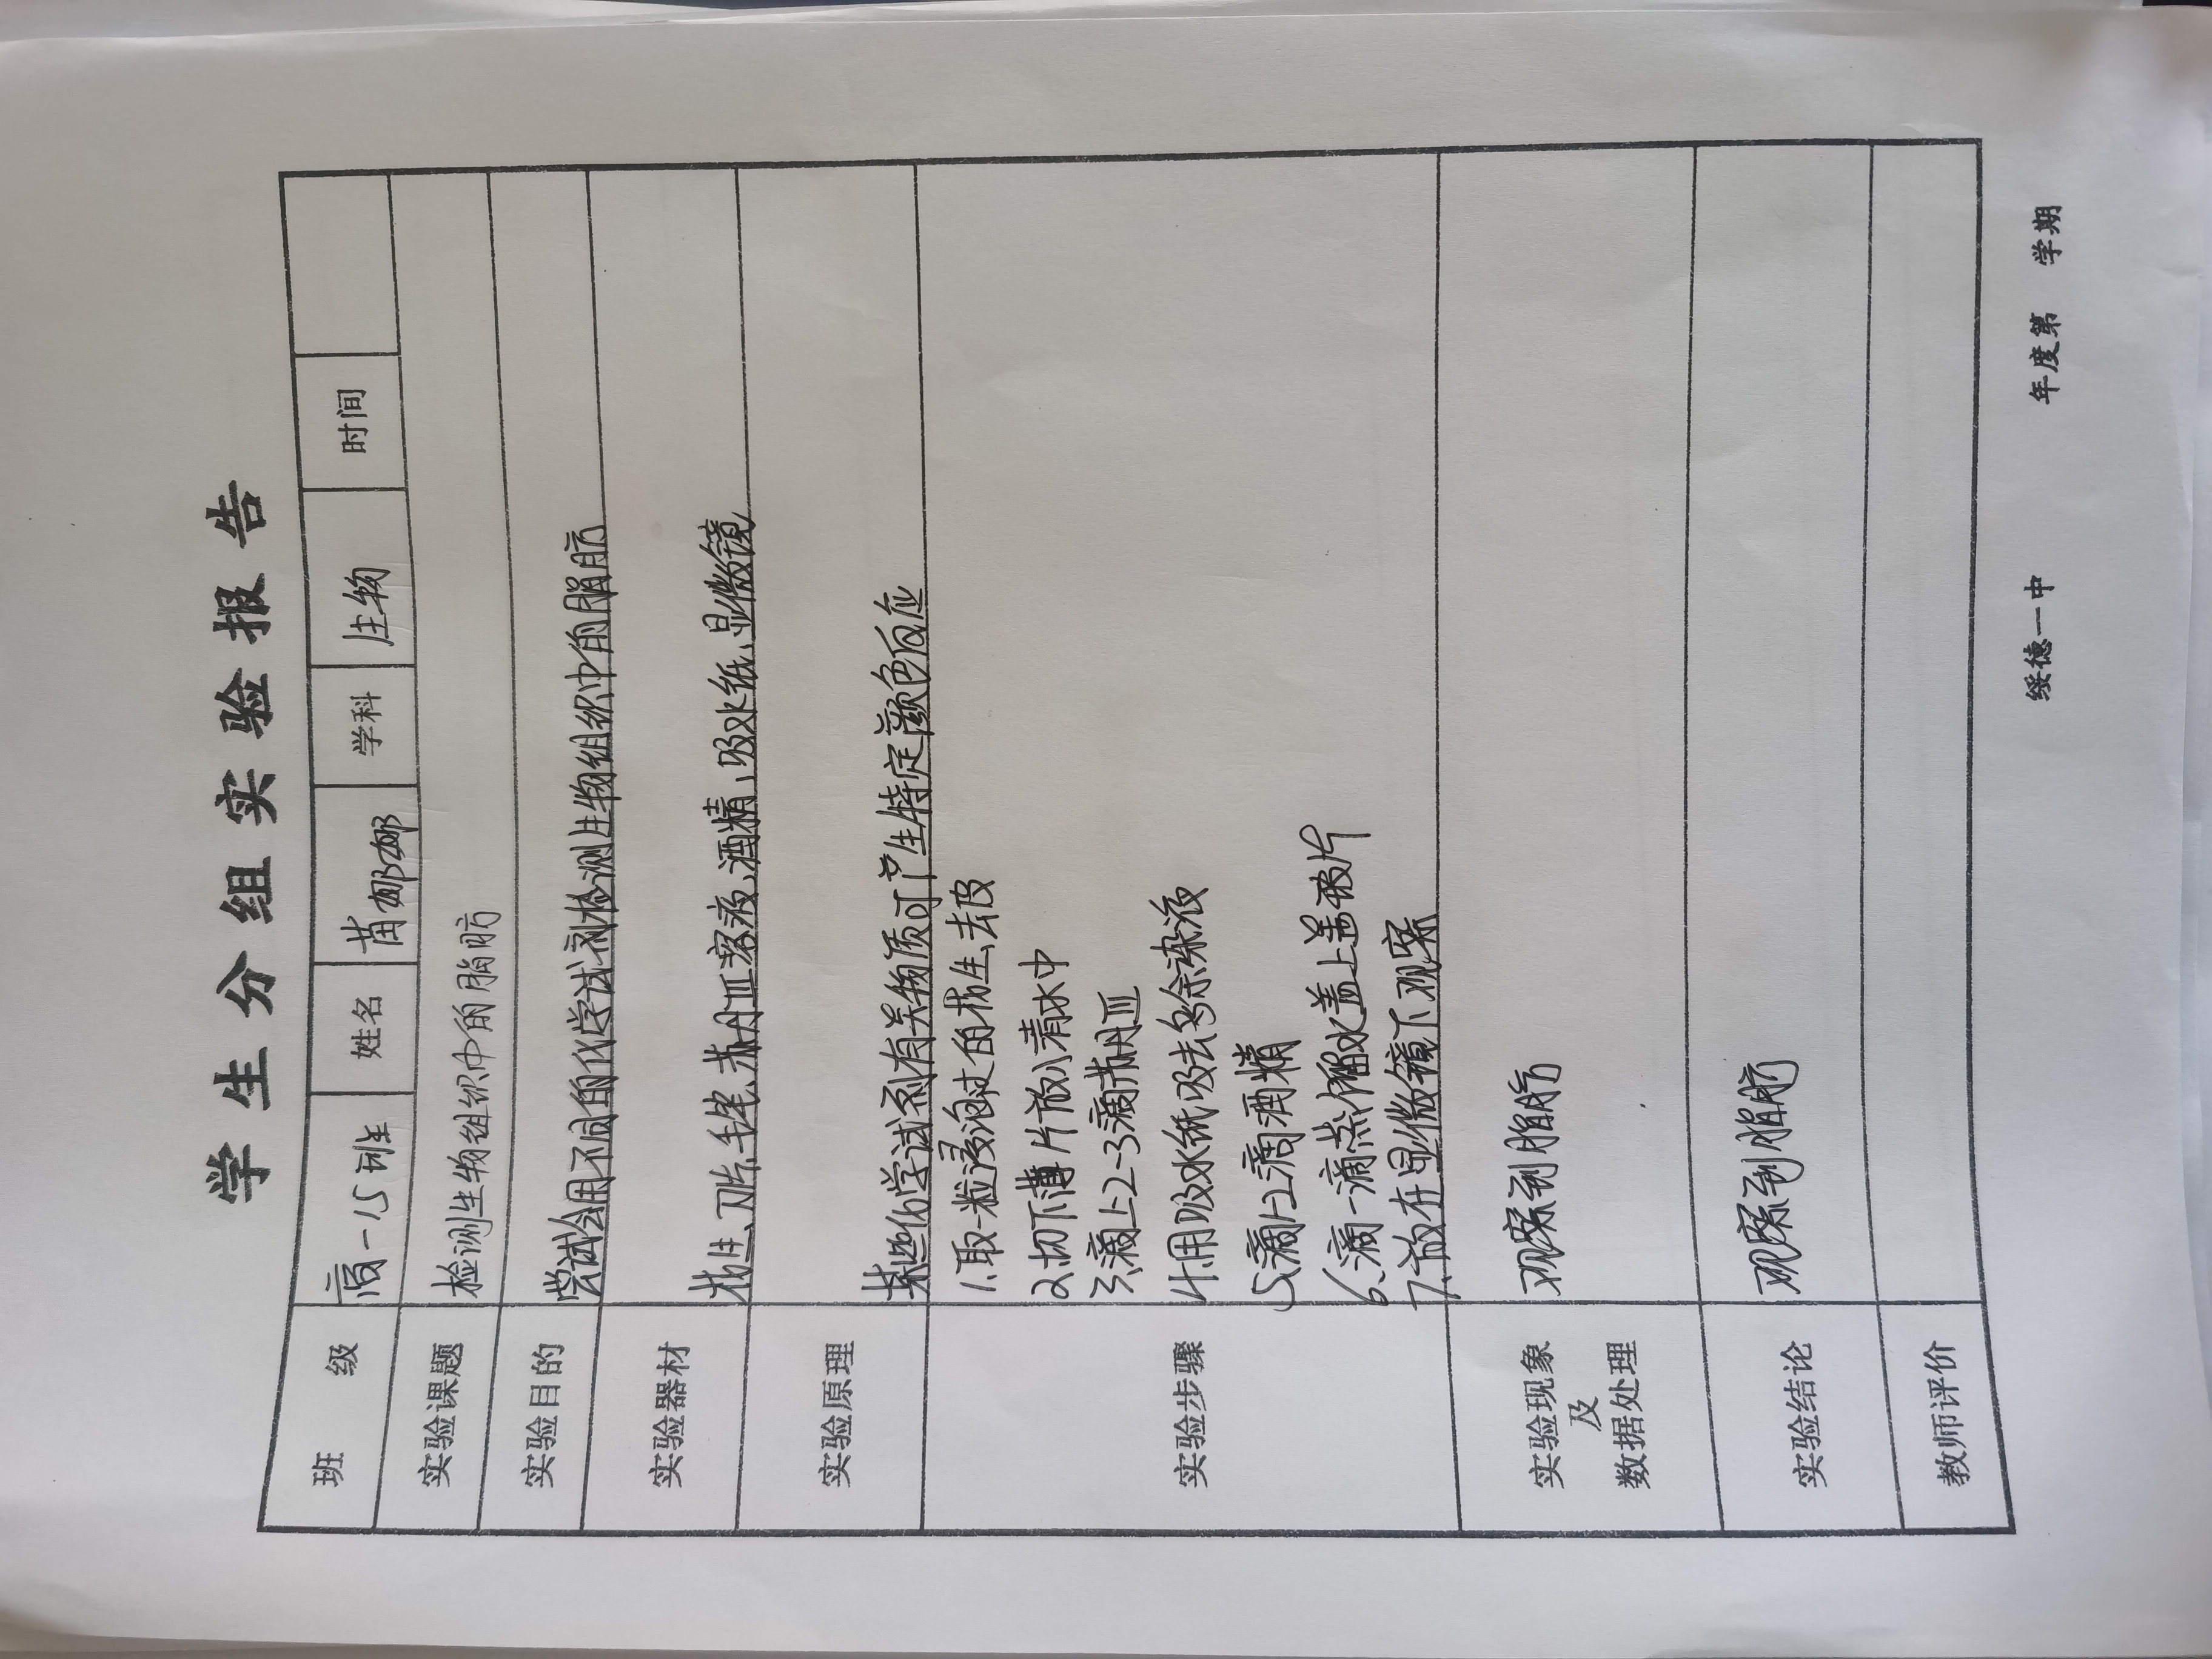 学生分组实验报告
班级 高一15班 姓名 苗娜娜 学科 生物 时间
实验课题 检测生物组织中的脂肪
实验目的 尝试会用不同的化学试剂检测生物组织中的脂肪
实验器材 花生、刀片、毛笔、苏丹Ⅲ溶液、酒精、吸水纸、显微镜
实验原理 某些化学试剂有关物质可产生特定颜色反应
实验步骤
1.取一粒浸泡过的花生、去皮
2.切下薄片放入清水中
3.滴上2-3滴苏丹Ⅲ
4.用吸水纸吸去多余染液
5.滴1-2滴酒精
6.滴一滴蒸馏水盖上盖玻片
7.放在显微镜下观察
实验现象
及
数据处理
观察到脂肪
实验结论 观察到脂肪
教师评价
绥德一中 年度第 学期